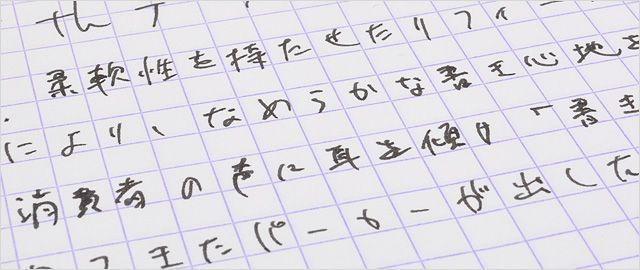 柔軟性を持たせたリフィー
により、なめらかな書き心地を
消費者の声に耳を傾け「書き
てきたパーカーが出した